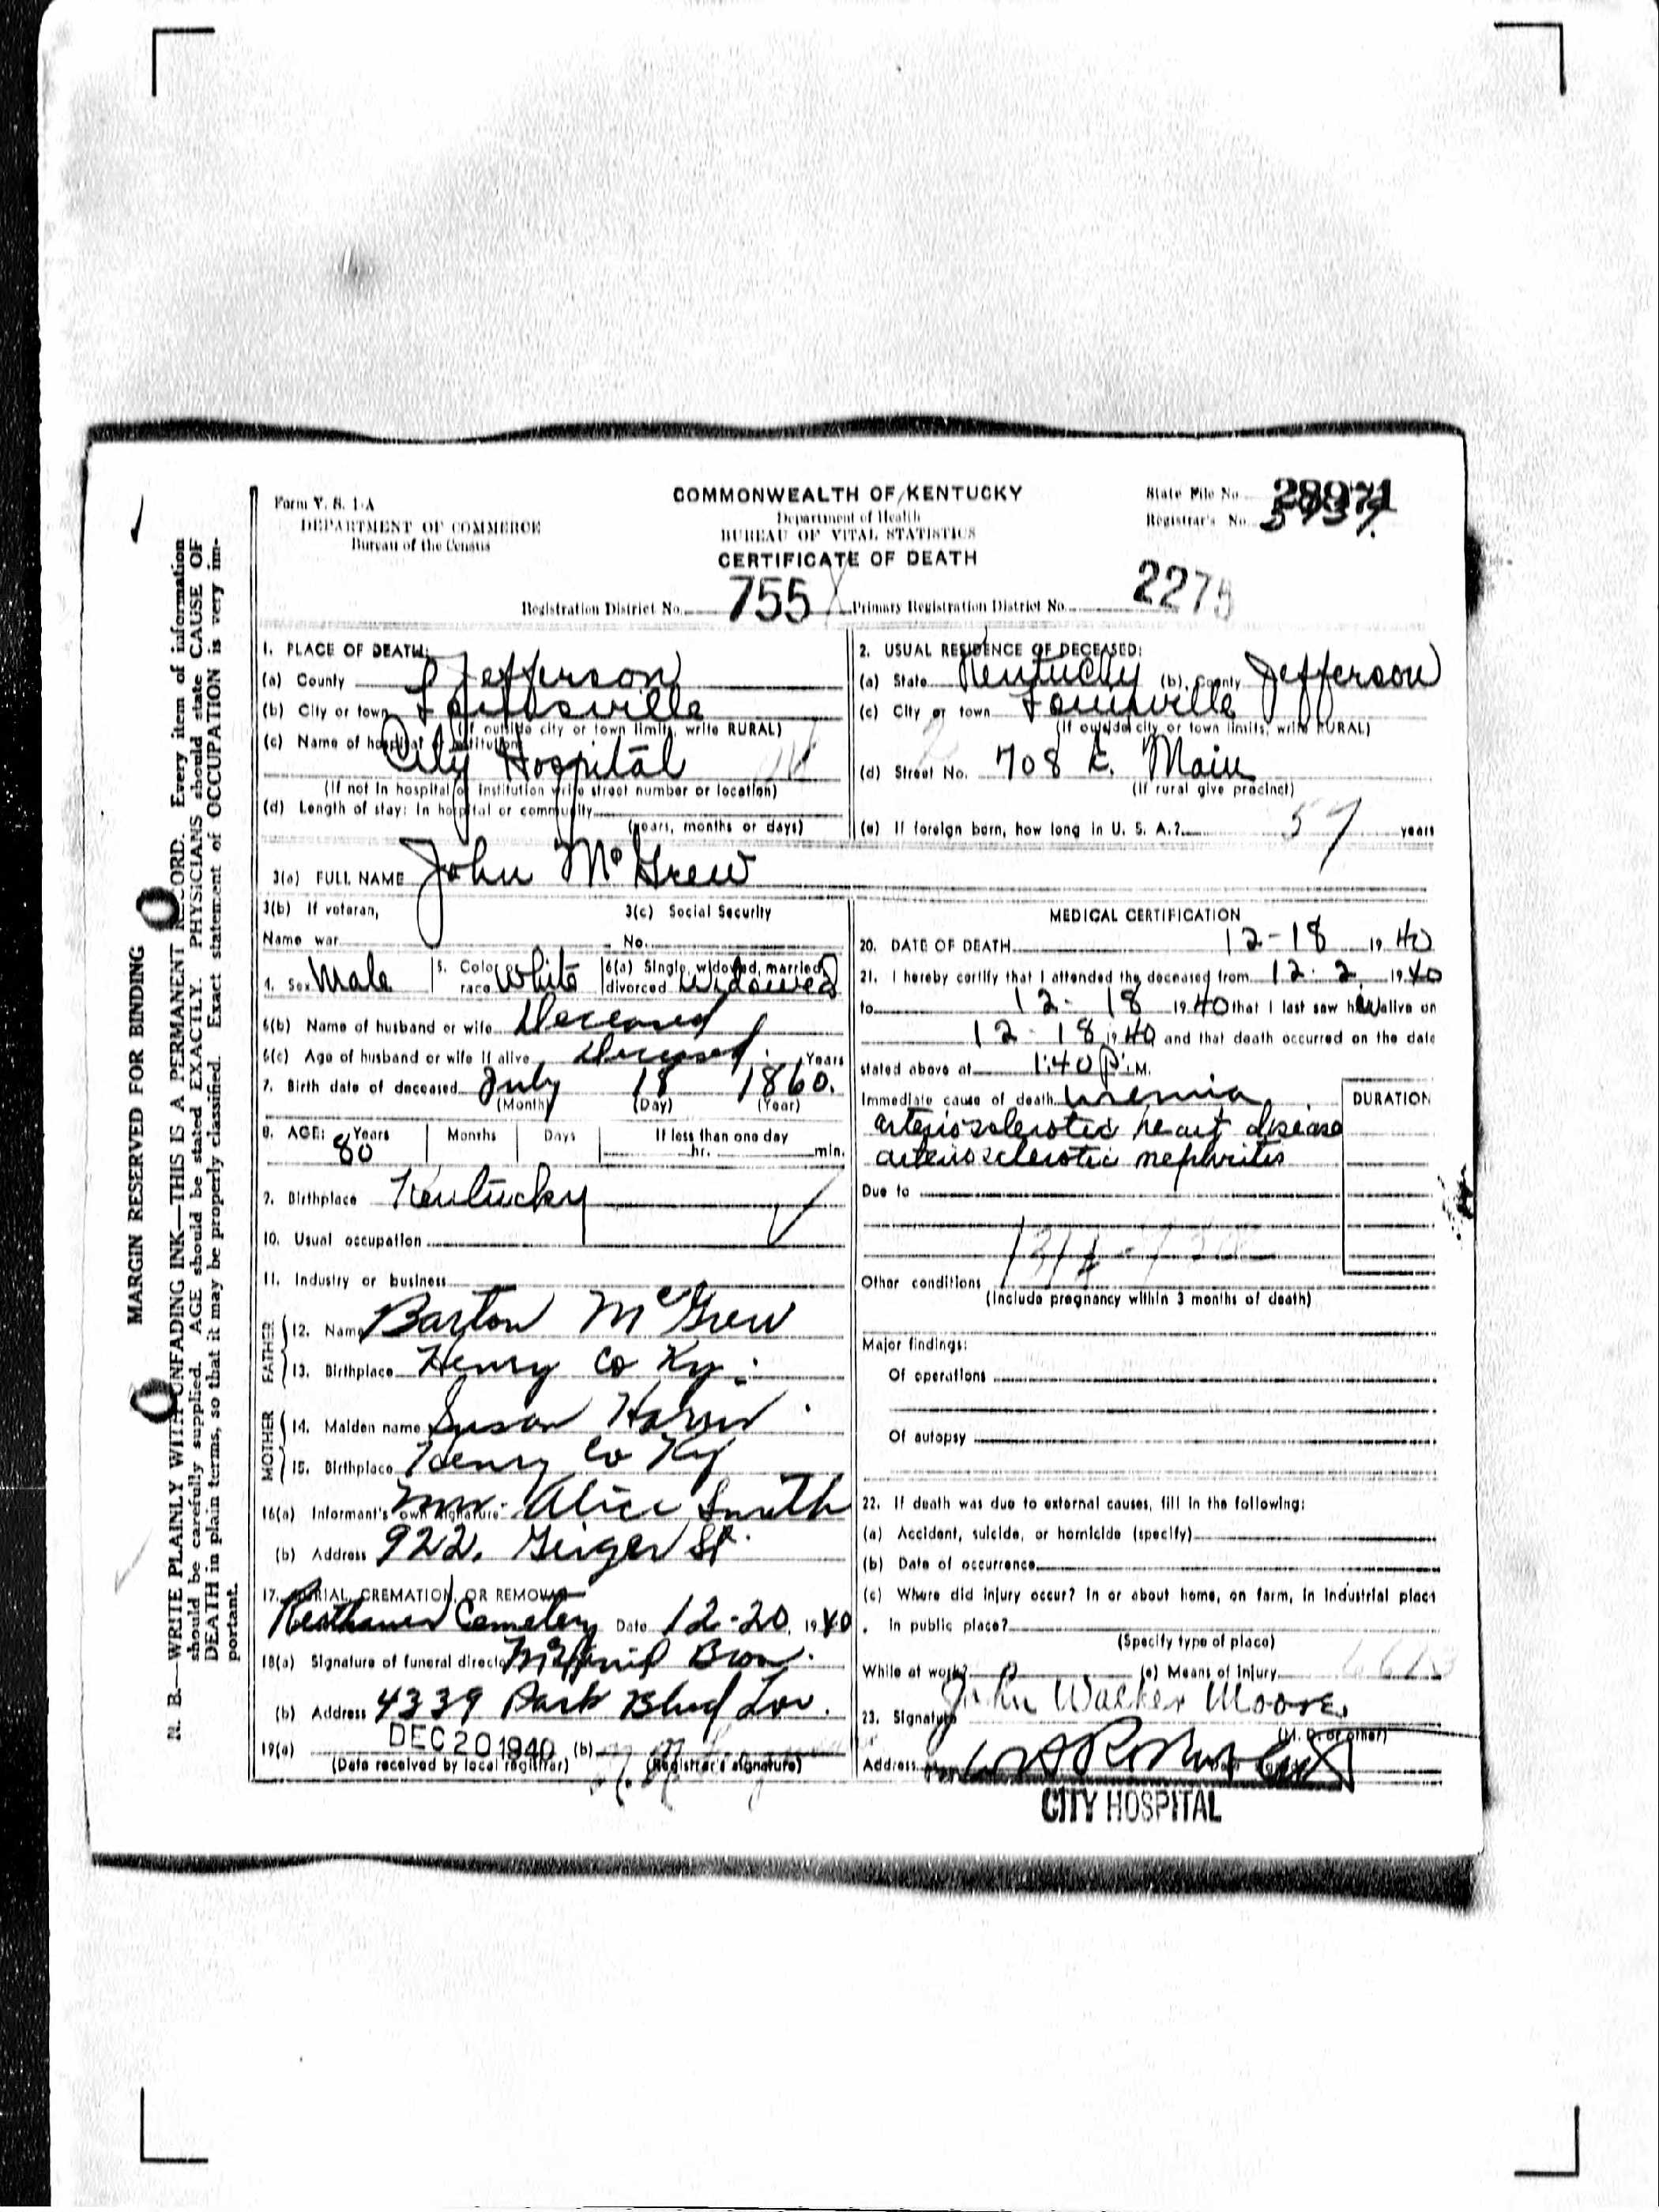 Form V. S. 1-A
DEPARTMENT OF COMMERCE
Bureau of the Census
COMMONWEALTH OF KENTUCKY
Department of Health
BUREAU OF VITAL STATISTICS
CERTIFICATE OF DEATH
State File No. 28971
Registrar's No.
Registration District No. 755 Primary Registration District No. 2275
MARGIN RESERVED FOR BINDING
N. B.—WRITE PLAINLY WITH UNFADING INK—THIS IS A PERMANENT RECORD. Every item of information
should be carefully supplied. AGE should be stated EXACTLY. PHYSICIANS should state CAUSE OF
DEATH in plain terms, so that it may be properly classified. Exact statement of OCCUPATION is very im-
portant.
1. PLACE OF DEATH:
(a) County Jefferson
(b) City or town Louisville
(If outside city or town limits, write RURAL)
(c) Name of hospital or institution
City Hospital
(If not in hospital or institution write street number or location)
(d) Length of stay: In hospital or community
(years, months or days)
2. USUAL RESIDENCE OF DECEASED:
(a) State Kentucky (b) County Jefferson
(c) City or town Louisville
(If outside city or town limits, write RURAL)
(d) Street No. 708 E. Main
(If rural give precinct)
(e) If foreign born, how long in U. S. A.? years
3(a) FULL NAME John McGrew
3(b) If veteran, 3(c) Social Security
Name war No.
4. Sex Male 5. Color race White 6(a) Single, widowed, married, divorced Widowed
6(b) Name of husband or wife Deceased
6(c) Age of husband or wife if alive Deceased. Years
7. Birth date of deceased July 18 1860.
(Month) (Day) (Year)
8. AGE: Years Months Days If less than one day
80 hr. min.
9. Birthplace Kentucky
10. Usual occupation
11. Industry or business
FATHER
12. Name Barton McGrew
13. Birthplace Henry Co Ky.
MOTHER
14. Maiden name Susan
15. Birthplace Henry Co Ky
16(a) Informant's own signature Alice Smith
(b) Address 922. Geiger St.
17. BURIAL, CREMATION, OR REMOVAL
Resthaven Cemetery Date 12-20, 1940
18(a) Signature of funeral director Bros.
(b) Address 4339 Park Blvd Lou.
19(a) DEC 20 1940 (b)
(Date received by local registrar) (Registrar's signature)
MEDICAL CERTIFICATION
20. DATE OF DEATH 12-18 1940
21. I hereby certify that I attended the deceased from 12-2 1940
to 12-18 1940 that I last saw him alive on
12-18 1940 and that death occurred on the date
stated above at 1:40 P.M.
Immediate cause of death uremia DURATION
arteriosclerotic heart disease
arteriosclerotic nephritis
Due to
Other conditions
(Include pregnancy within 3 months of death)
Major findings:
Of operations
Of autopsy
22. If death was due to external causes, fill in the following:
(a) Accident, suicide, or homicide (specify)
(b) Date of occurrence
(c) Where did injury occur? In or about home, on farm, in industrial place
in public place?
(Specify type of place)
While at work? (e) Means of injury
23. Signature John Walker Moore
(M. D. or other)
Address
CITY HOSPITAL